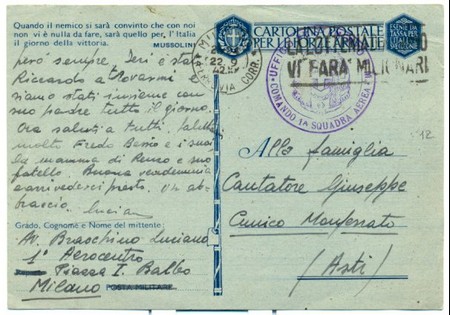 Quando il nemico si sarà convinto che con noi
non vi è nulla da fare, sarà quello per, l'Italia
il giorno della vittoria.
MUSSOLINI
però sempre. Ieri è stato
Riccardo a
siamo stati insieme con
suo padre tutto il giorno.
Ora saluti a tutti.
molto Fredo Bosio e i suoi
la mamma di Renzo e suo
fratello. Buona vendemmia
arrivederci presto. Un ab-
braccio. Luciano
Grado, Cognome e Nome del mittente:
Av. Braschino Luciano
1° Aerocentro
Piazza I. Balbo
Milano POSTA MILITARE
CARTOLINA POSTALE
PER LE FORZE ARMATE
ESENTE DA
TASSA PER
MILANO
22.9
FERROVIA CORR.
VI FARÀ MILIONARI
COMANDO 1A SQUADRA AEREA
12
Alla famiglia
Cantatore Giuseppe
Cunico Monferrato
(Asti)